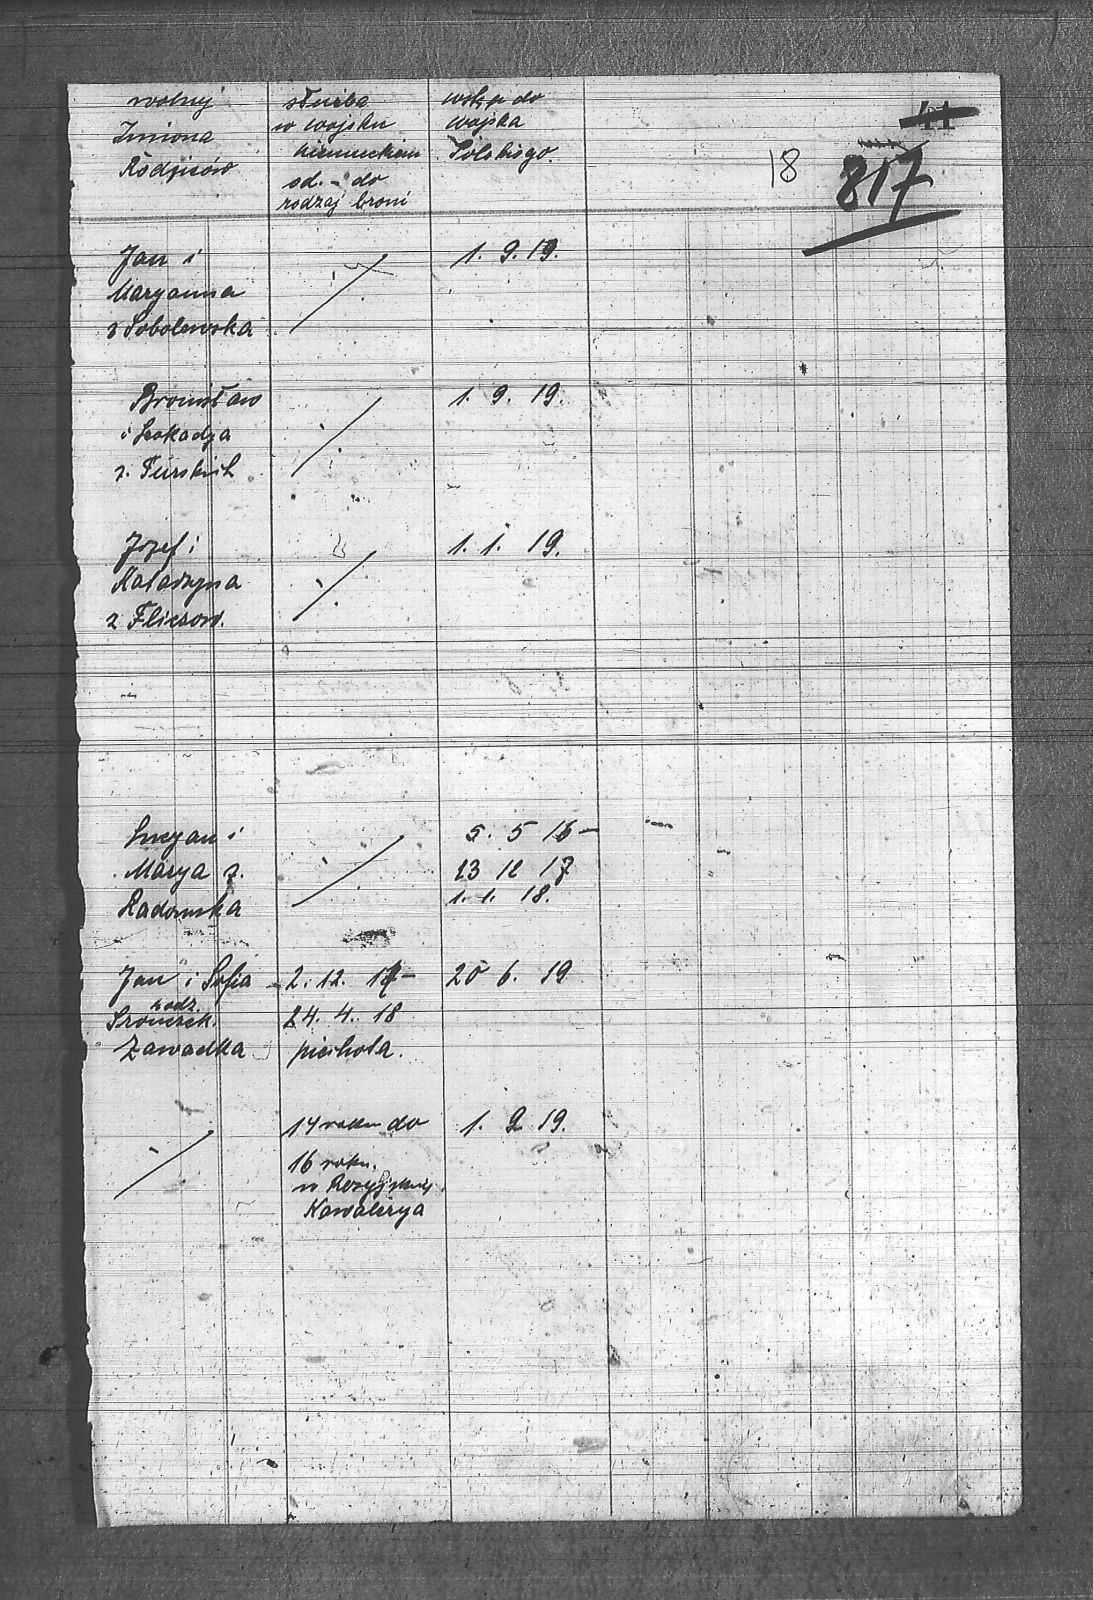 wolny
Imiona
Rodziców
służba
w wojsku
niemieckim
od. - do
rodzaj broni
wstęp do
wojska
Polskiego.
41
18
817
Jan i
Maryanna
z Sobolewska
1. 9. 19.
Bronisław
i Leokadja
z. Turskich
1. 9. 19.
Józef i
Katarzyna
z Fliesow.
1. 1. 19.
Lucyan i
Marya z.
Radomska
5. 5 16 -
23 12 17
1. 1. 18.
Jan i Sofia
rodz.
Zawadka
2. 12. 17 -
24. 4. 18
piechota.
20 6. 19
14 roku do
16 roku.
w Rosyjskiej
Kawalerya
1. 2. 19.